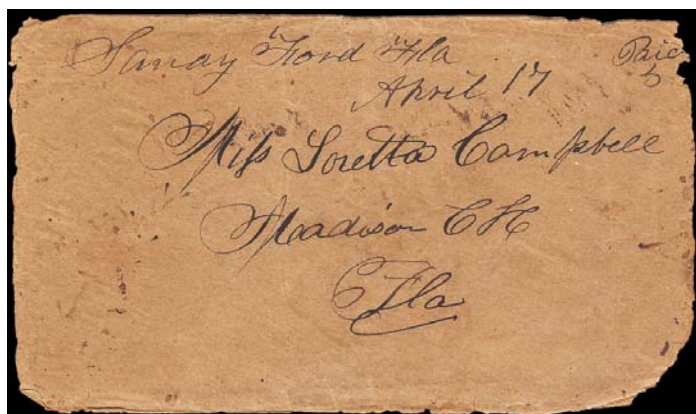 Sandy Ford Fla Paid
April 17 5
Miss Loretta Campbell
Madison CH
Fla